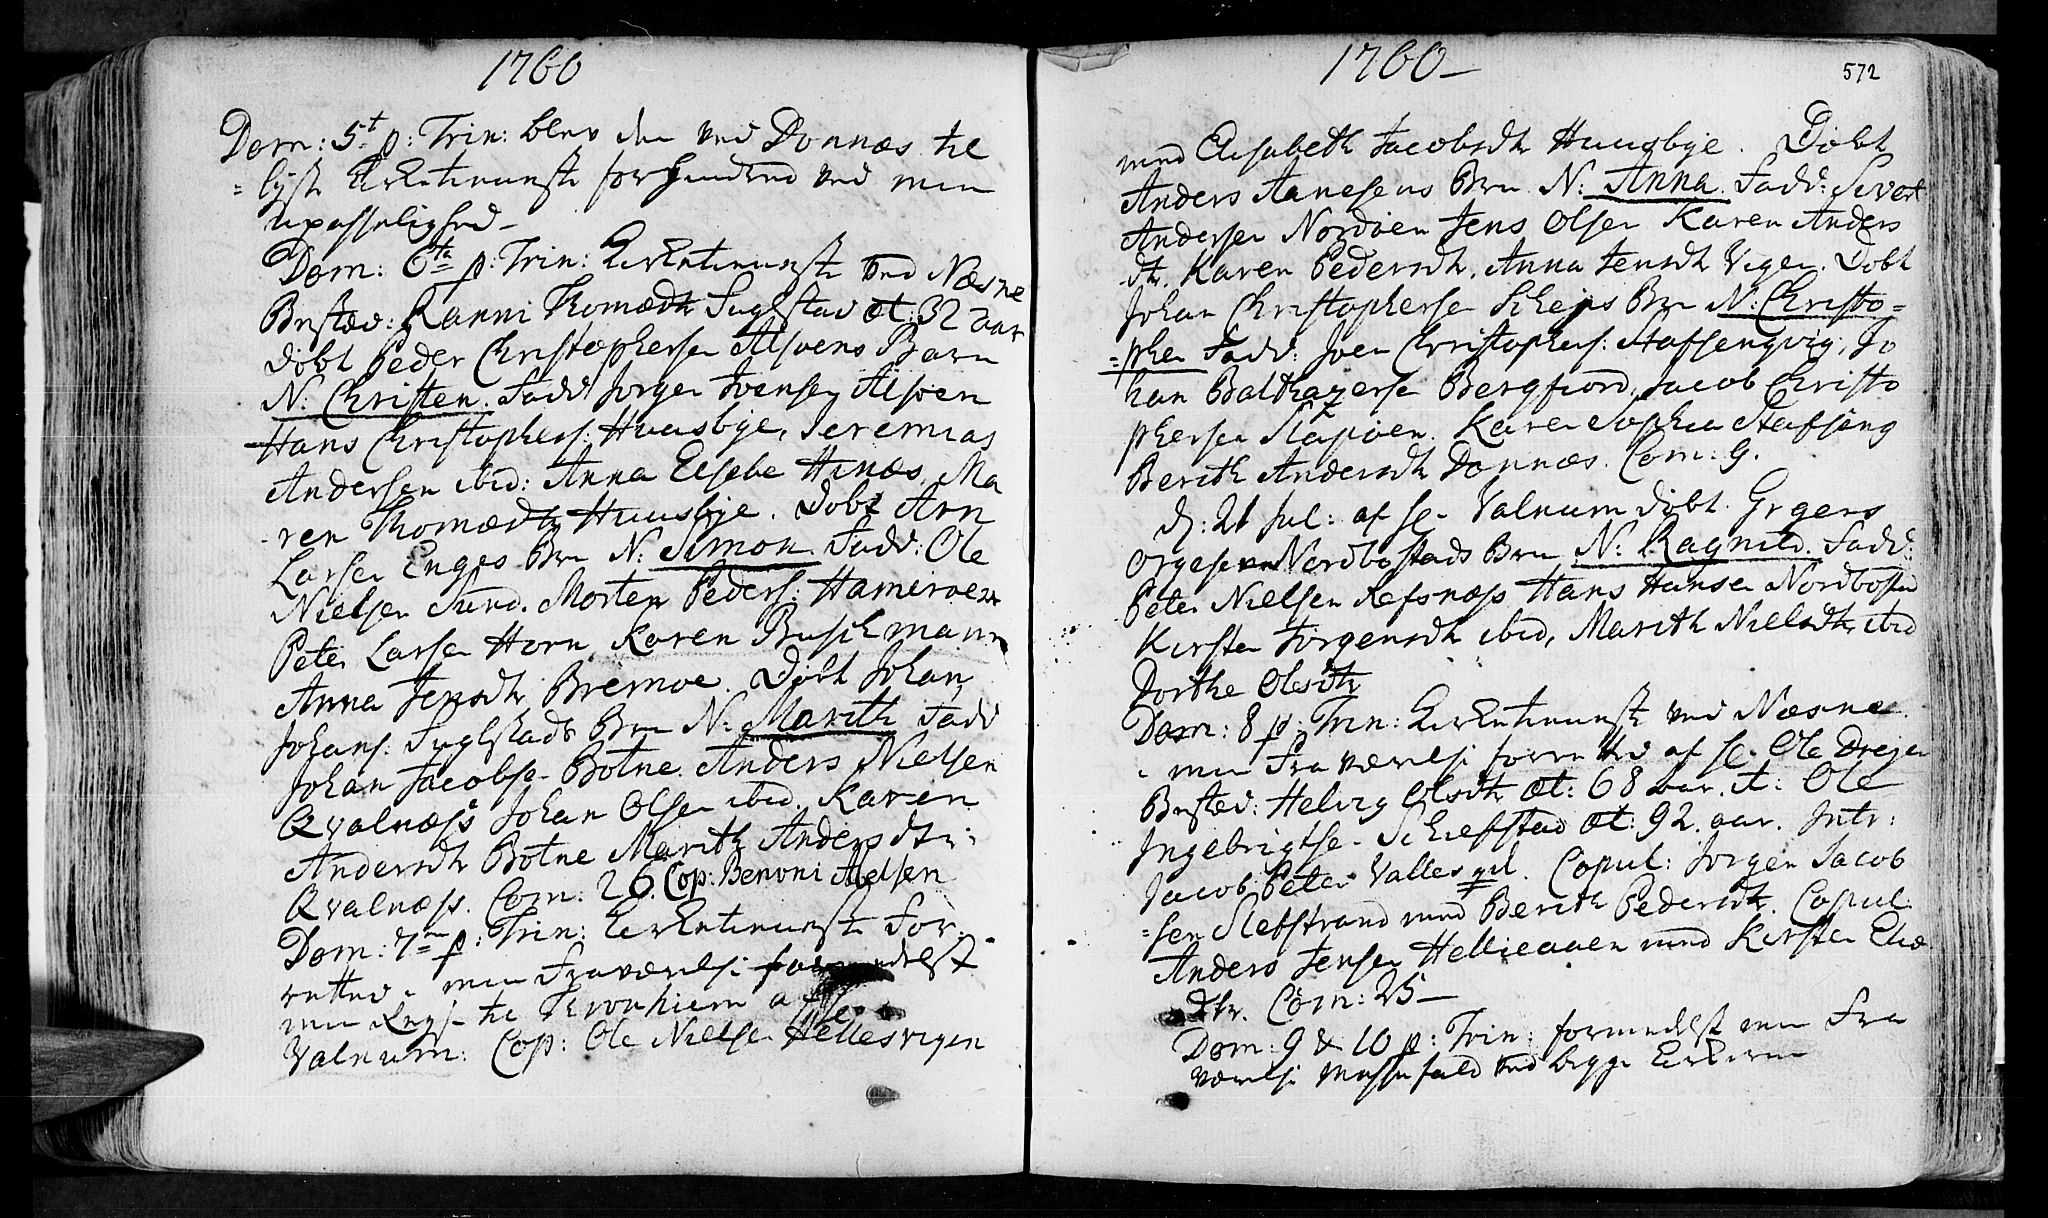 1760
Dom: 5t p: Trin: blev den ved Dønnæs til
=lyste Kirketieneste forhindred ved min
upasselighed -
Dom: 6ta p: Trin: Kirketieneste ved Næsne
Begrav: Ranni Thomædtr Fuglstad æt: 32 aar
døbt Peder Christophersen Alsøens Barn
N: Christen. Fadd: Jørgen Ivensen Alsøen
Hans Christophers: Huusbye, Jeremias
Andersen ibid: Anna Elsebe Hinæs, Ma
ren Thomædtr Huusbye. Døbt Arn
Larsen Enges Brn N: Simon Fadd: Ole
Nielsen Sund. Morten Peders: Hamerøen
Peter Larsen Horn Karen Buschmann
Anna Jensdtr Bremoe. Døbt Johan
Johans: Fuglstads Brn N: Marith Fadd
Johan Jacobse- Botne. Anders Nielsen
Qvalnæss Johan Olsen ibid. Karen
Andersdtr Botne Marith Andersdtr:
Qvalnæss. Com: 26. Cop: Benoni Abelsen
Dom: 7m p: Trin: Kirketieneste for-
retted i min Fraværelse formedelst
min Reyse til Tronhiem af Hr.
Valnum: Cop: Ole Nielsen Hellesvigen
1760 -
572
med Elisabeth Jacobsdtr Huusbye. Døbt
Anders Aanesens Brn N: Anna. Fadd: Sivert
Andersen Nordøen Jens Olsen Karen Anders
dtr. Karen Pedersdtr. Anna Jensdtr Vigen. Døbt
Johan Christophersen Scheys Brn N: Christo-
=pher Fadd: Joen Christophers: Stafsengvig, Jo
han Balthazersen Bergfiord, Jacob Christo
phersen Slapøen. Karen Sophia Stafseng
Berith Andersdtr Dønnæs. Com: 9.
d: 21 Jul: af Hr Valnum døbt. Grgers
Orgesen Nordbostads Brn N: Ragnild. Fadd:
Peter Nielsen Refsnæss Hans Hansen Nordbostad
Kirsten Jørgensdtr ibid, Marith Nielsdtr ibid
Dorthe Olesdtr
Dom: 8 p: Trin: Kirketieneste ved Næsne
i min Fraværelse forrettet af Hr Ole Dreyer
Begrav: Helvig Olesdtr æt: 68 aar. it: Ole
Ingebrigtse- Schiefstad æt: 92. aar. Intr:
Jacob Peter Valles qvl. Copul: Jørgen Jacob
=sen Slebstrand med Berith Pedersdtr. Copul:
Anders Jensen Hellieaaen med Kirsten Elia
Dtr. Com: 25 -
Dom: 9 & 10 p: Trin: formedelst min Fra
værelse Messefald ved begge Kirkerne